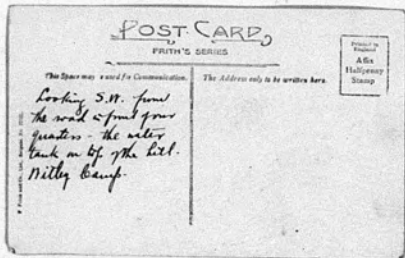 POST CARD
FRITH'S SERIES
Printed in
England
Affix
Halfpenny
Stamp
This Space may used for Communication.
The Address only to be written here.
Looking S.W. from
the road in front of our
quarters - the water
tank on top of the hill.
Witley Camp.